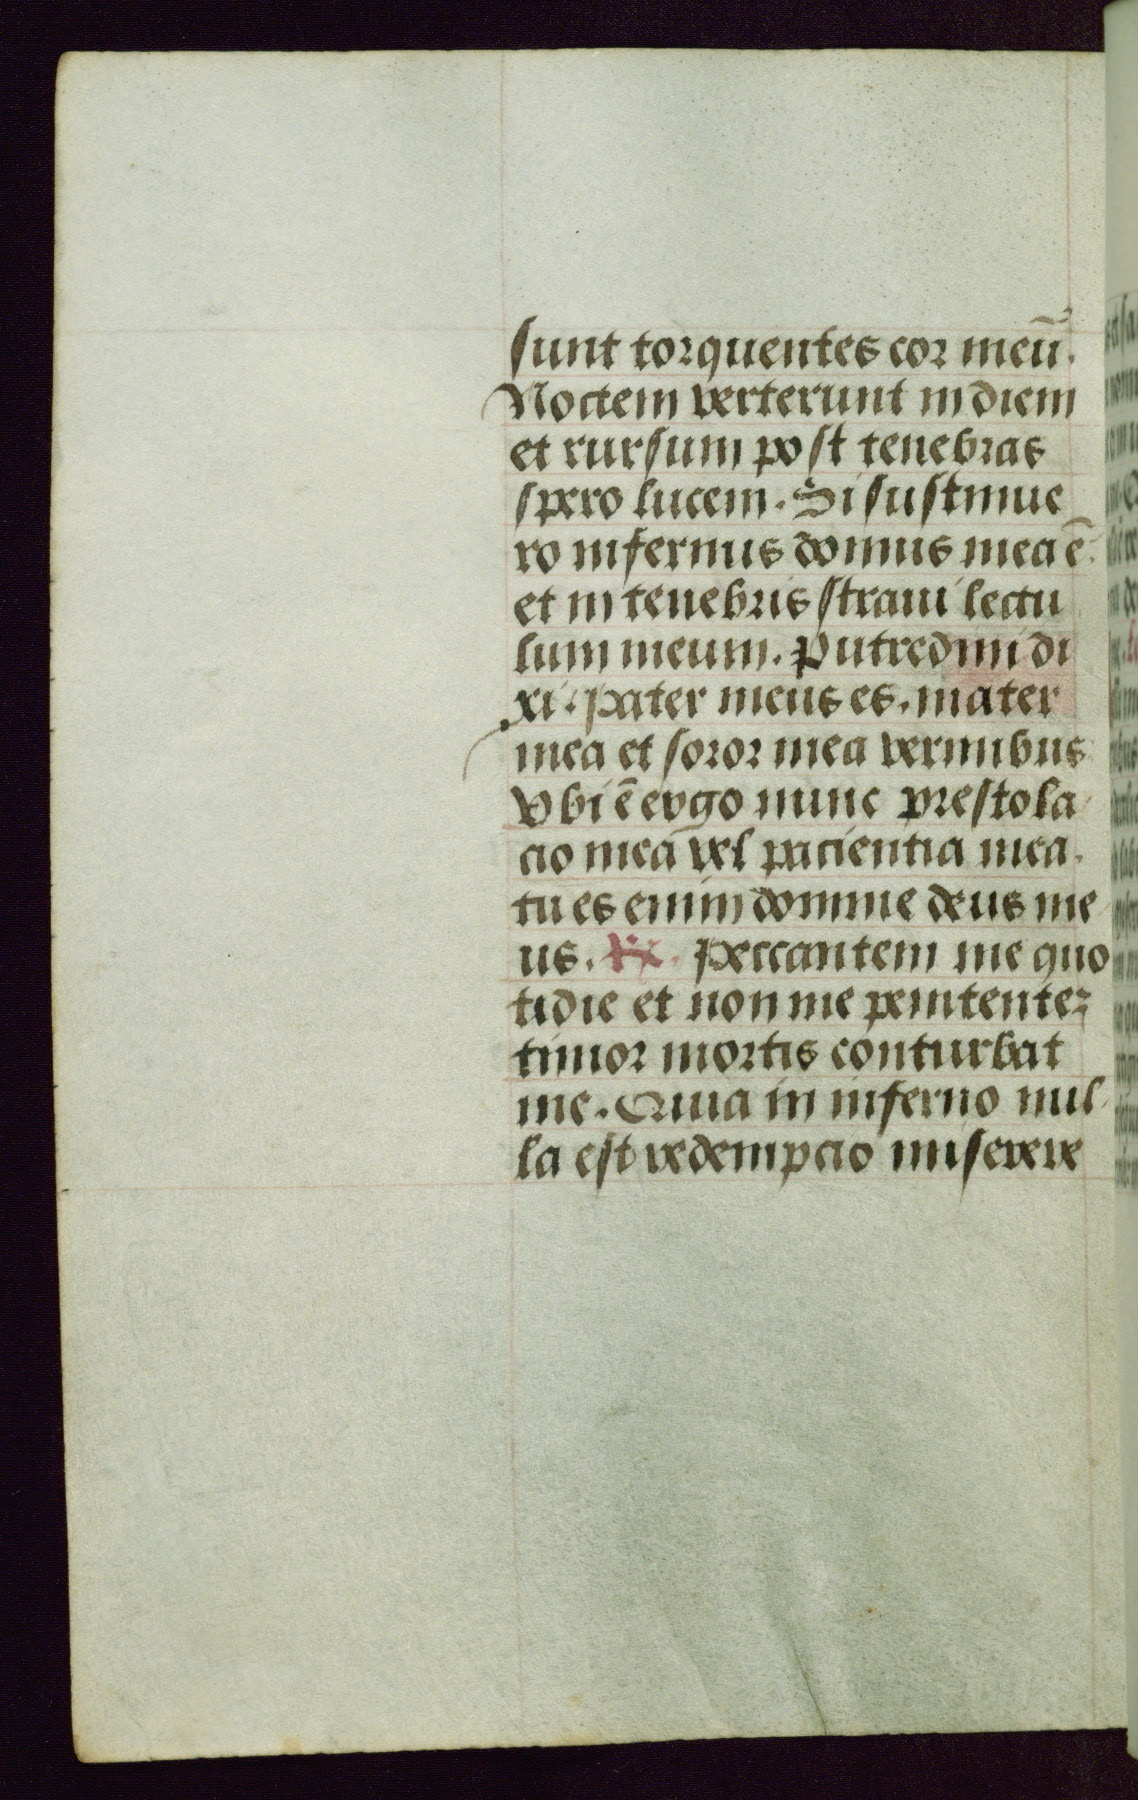 sunt torquentes cor meū.
Noctem verterunt in diem
et rursum post tenebras
spero lucem. Si sustinue
ro infernus domus mea ē.
et in tenebris straui lectu
lum meum. Putredini di
xi. pater meus es. mater
mea et soror mea vermibus
Vbi ē ergo nunc prestola
cio mea vel paciencia mea.
tu es enim domine deus me
us. ℟. Peccantem me quo
tidie et non me penitentez
timor mortis conturbat
me. Quia in inferno nul
la est redempcio miserere